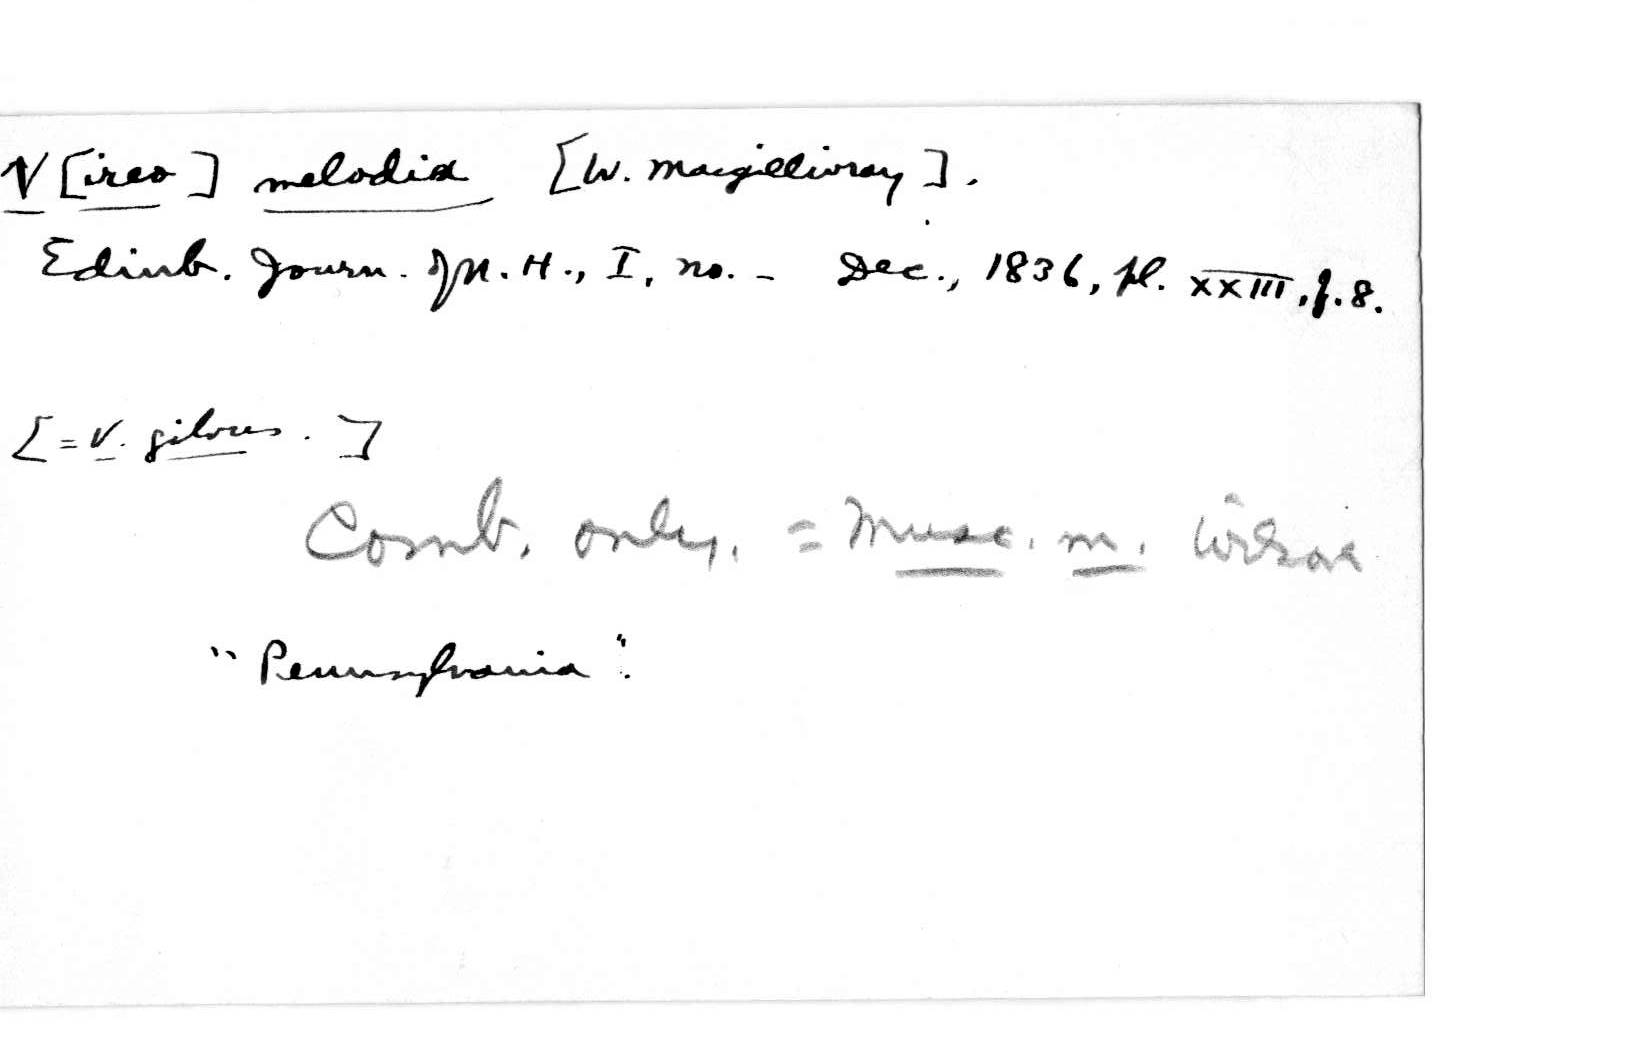 V[ireo] melodia [W. Macgillivray].
Edinb. Journ. of N. H., I, no. - Dec., 1836, pl. XXIII, f. 8.
[= V. gilvus.]
Comb. only. = Musc. m. Wilson
"Pennsylvania".